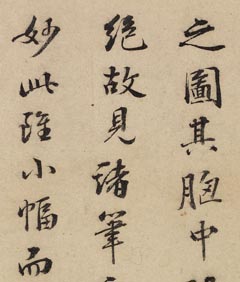 之圖其胸中
絕故見諸筆
妙此雖小幅而